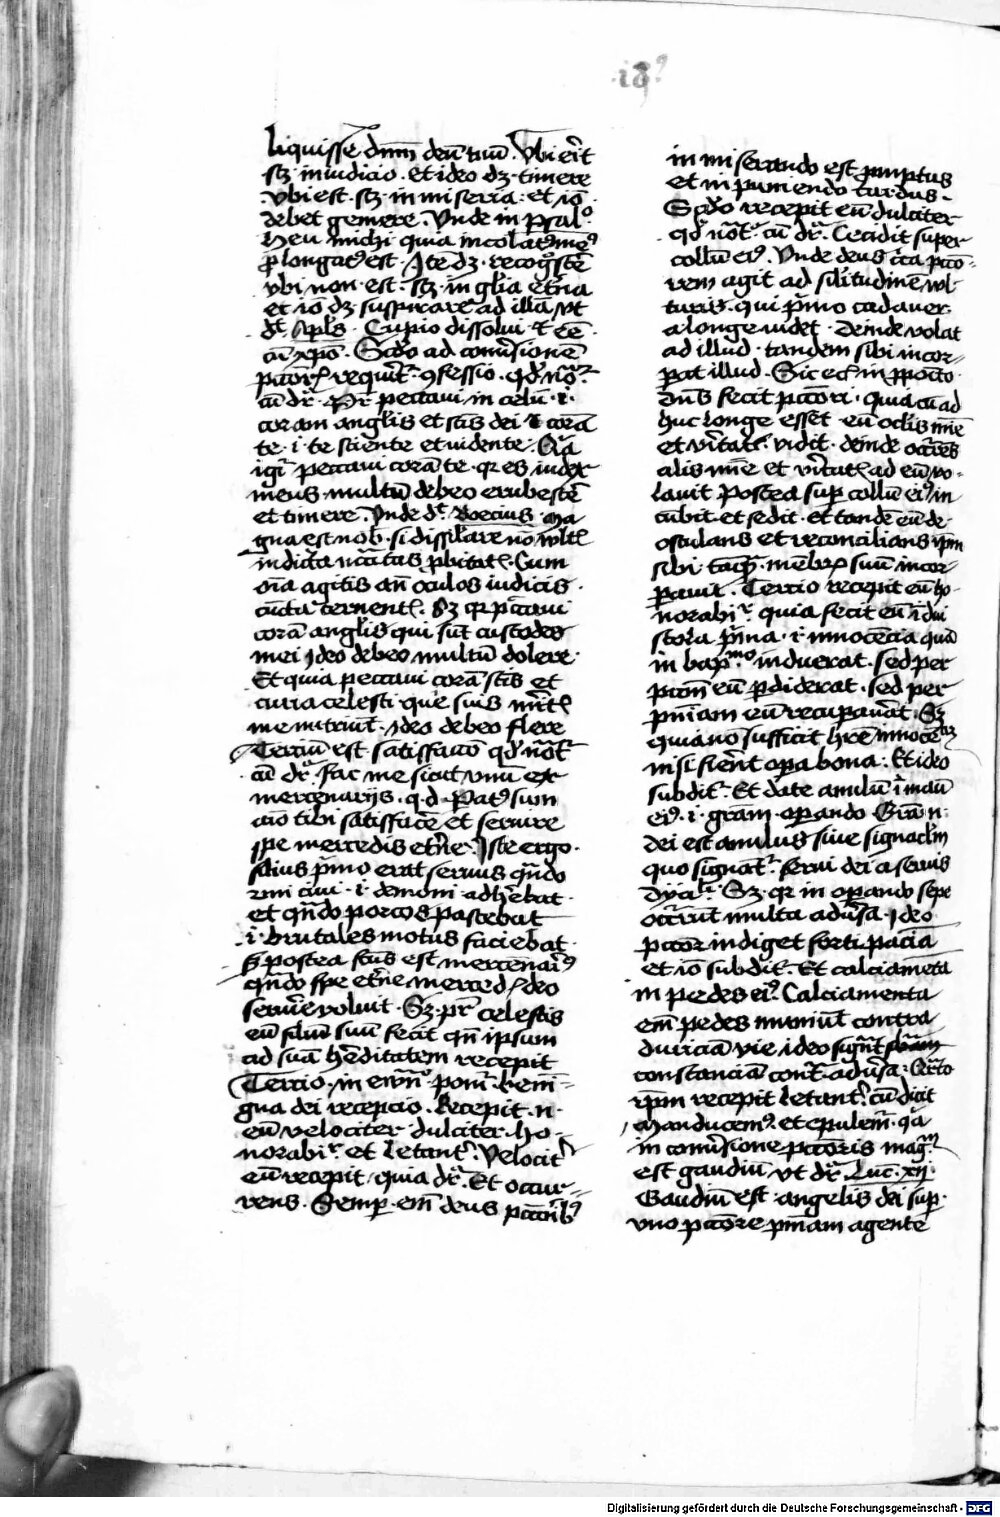 .18?
liquisse̅ dn̅m deu̅ tuu̅ . Vbi er̅it
scz in iudicio . et ideo dz timere
vbi est . scz in miseria . et io̅
debet gemere . Vnde in psalo
heu michi quia incolat9 me9
p̅longat9 est . Ite̅ dz . recog̅sce̅
vbi non est . scz in gl̅ia et̅na
et io̅ dz suspirare ad illa̅ vt
dt̅ apl̅s . Cupio dissolui et ee̅
cu̅ xpo̅ . Sc̅do ad co̅uersione̅
pcc̅or requit̅ . 9fessio . qd̅ not̅
cu̅ dr̅ . Pr̅ peccaui in celu̅ . i .
coram angl̅is et sc̅is dei et cora̅
te . i . te sciente et vidente . Qa̅
igi̅ peccaui cora̅ te . qr es iudex
meus multu̅ debeo erubesce̅
et timere . Vnde dt̅ Boecius . ma
gna est nob̅ . si dissil̅are no̅ wlt̅
indicta n̅c̅itas p̅bitat̅ . Cum
o̅ia agitis an̅ oculos iudicis
cu̅cta cernent̅ . Sz qr pc̅caui
cora̅ angl̅is qui su̅t custodes
mei ideo debeo multu̅ dolere .
Et quia peccaui cora̅ sc̅is et
curia celesti que suis mer̅it̅
me nutriu̅t . ideo debeo flere
Terciu̅ est satisfacc̅o qd̅ not̅
cu̅ dr̅ . fac me sicut vnu̅ ex
mercenarijs . q . d . Pat9 sum
a̅i̅o tibi satisface̅ et seruire
spe mercedis et̅ne . Iste ergo .
filius p̅mo erat seruus qn̅do
vni ciui . i . demoni adh̅ebat .
et qn̅do porcos pascebat
. i . brutales motus faciebat .
S; postea fc̅us est mercenari9
qn̅do spe et̅ne merced̅ deo
serui̅e voluit . Sz . pr̅ celestis
eu̅ filiu̅ suu̅ fecit qn̅ ipsum
ad sua̅ he̅ditatem recepit
Tercio . in ewn̅o ponit̅ beni̅
gna dei recepcio . Recepit . n .
eu̅ velociter dulciter . ho-
norabi̅r . et letant̅ . Velocit̅
eu̅ recepit . quia dr̅ . Et occur-
rens . Semp̅ . em̅ deus pcc̅orib9
in miserando est pmptus
et in puniendo tardus .
Sc̅do recepit eu̅ dulciter
qd̅ not̅ . cu̅ dr̅ . Cecidit super
collu̅ ei9 . Vnde deus circa pcco̅-
rem agit ad sil̅itudine̅ wl-
turis . qui p̅mo cadauer
a longe uidet . Deinde volat
ad illud . tandem sibi incor-
p̅at illud . Sic ecia̅ in pposito
dn̅s fecit pcc̅ori . quia cu̅ ad
huc longe esset . eu̅ oclis mi̅e
et ve̅itat̅ vidit . deinde occ̅rens
alis mi̅e et ve̅itat̅ ad eu̅ vo-
lauit . Postea sup̅ collu̅ ei9 in
cubit . et sedit . et tande̅ eu̅ de
osculans et reconcilians ipm̅
sibi . tanq̅ . membr̅ suu̅ incor
p̅auit . Tercio recepit eu̅ ho-
norabi̅r . quia fecit eu̅ i̅dui
stola p̅ma . i . innoce̅cia qua̅
in bap̅mo induerat . sed per
pcc̅m eu̅ p̅diderat . sed per
pn̅iam eu̅ recup̅auit . Sz
quia no̅ sufficit h̅re innoce̅tia̅
nisi fie̅nt op̅a bona . Et ideo
subdit̅ . Et date anulu̅ i̅ manu̅
ei9 . i . gra̅m op̅ando . Gra̅ n̅ .
dei est anulus siue signaclm̅
quo signant̅ . serui dei a seruis
dyaboli . Sz . qr in op̅ando sepe
occ̅rrut multa adu̅sa . ideo
pcc̅or indiget forti pacia̅
et io̅ subdit̅ . Et calciame̅ta
in pedes ei9 . Calciamenta
em̅ pedes muniu̅t contra
duricia̅ vie . ideo sign̅t
constancia̅ cont̅ . adu̅sa . Qr̅to
ipm̅ recepit letant̅ . cu̅ dicit
manducem9 . et epulem̅ . qa̅
in co̅uersione pcc̅oris magnu̅
est gaudiu̅ . vt dr̅ . Luc̅ . xv .
Gaudiu̅ est . angelis dei sup̅ .
vno pcc̅ore pn̅iam agente
Digitalisierung gefördert durch die Deutsche Forschungsgemeinschaft - DFG